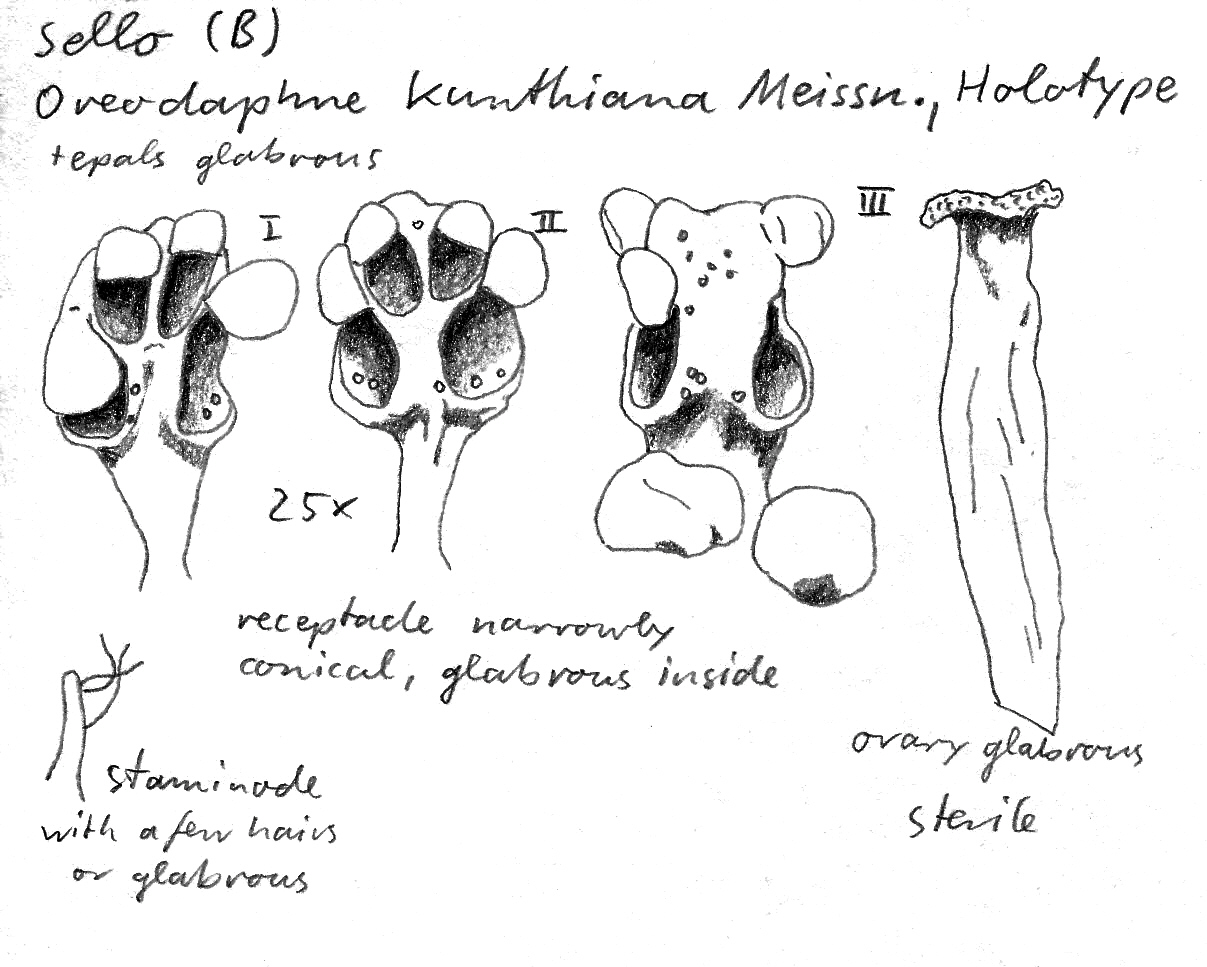 Sello (B)
Oreodaphne Kunthiana Meissn., Holotype
tepals glabrous
I
II
III
25x
receptacle narrowly
conical, glabrous inside
staminode
with a few hairs
or glabrous
ovary glabrous
sterile